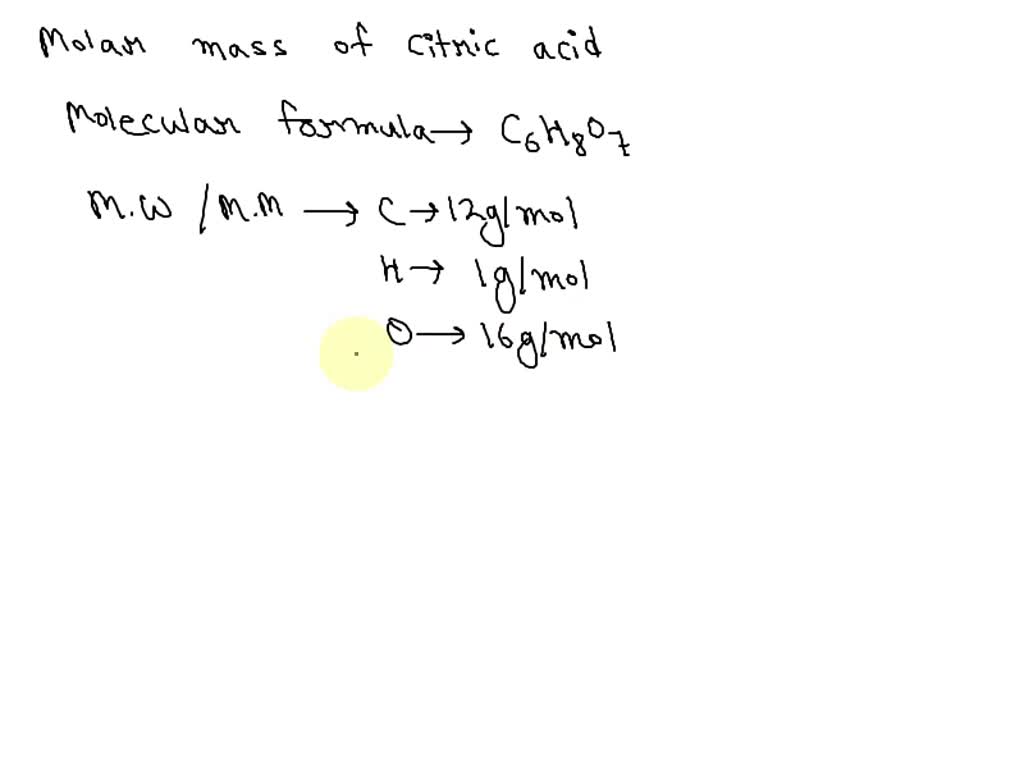 Molar mass of citric acid
Molecular formula→ C₆H₈O₇
M.W /M.M → C →12g/mol
H→ 1g/mol
O→ 16g/mol